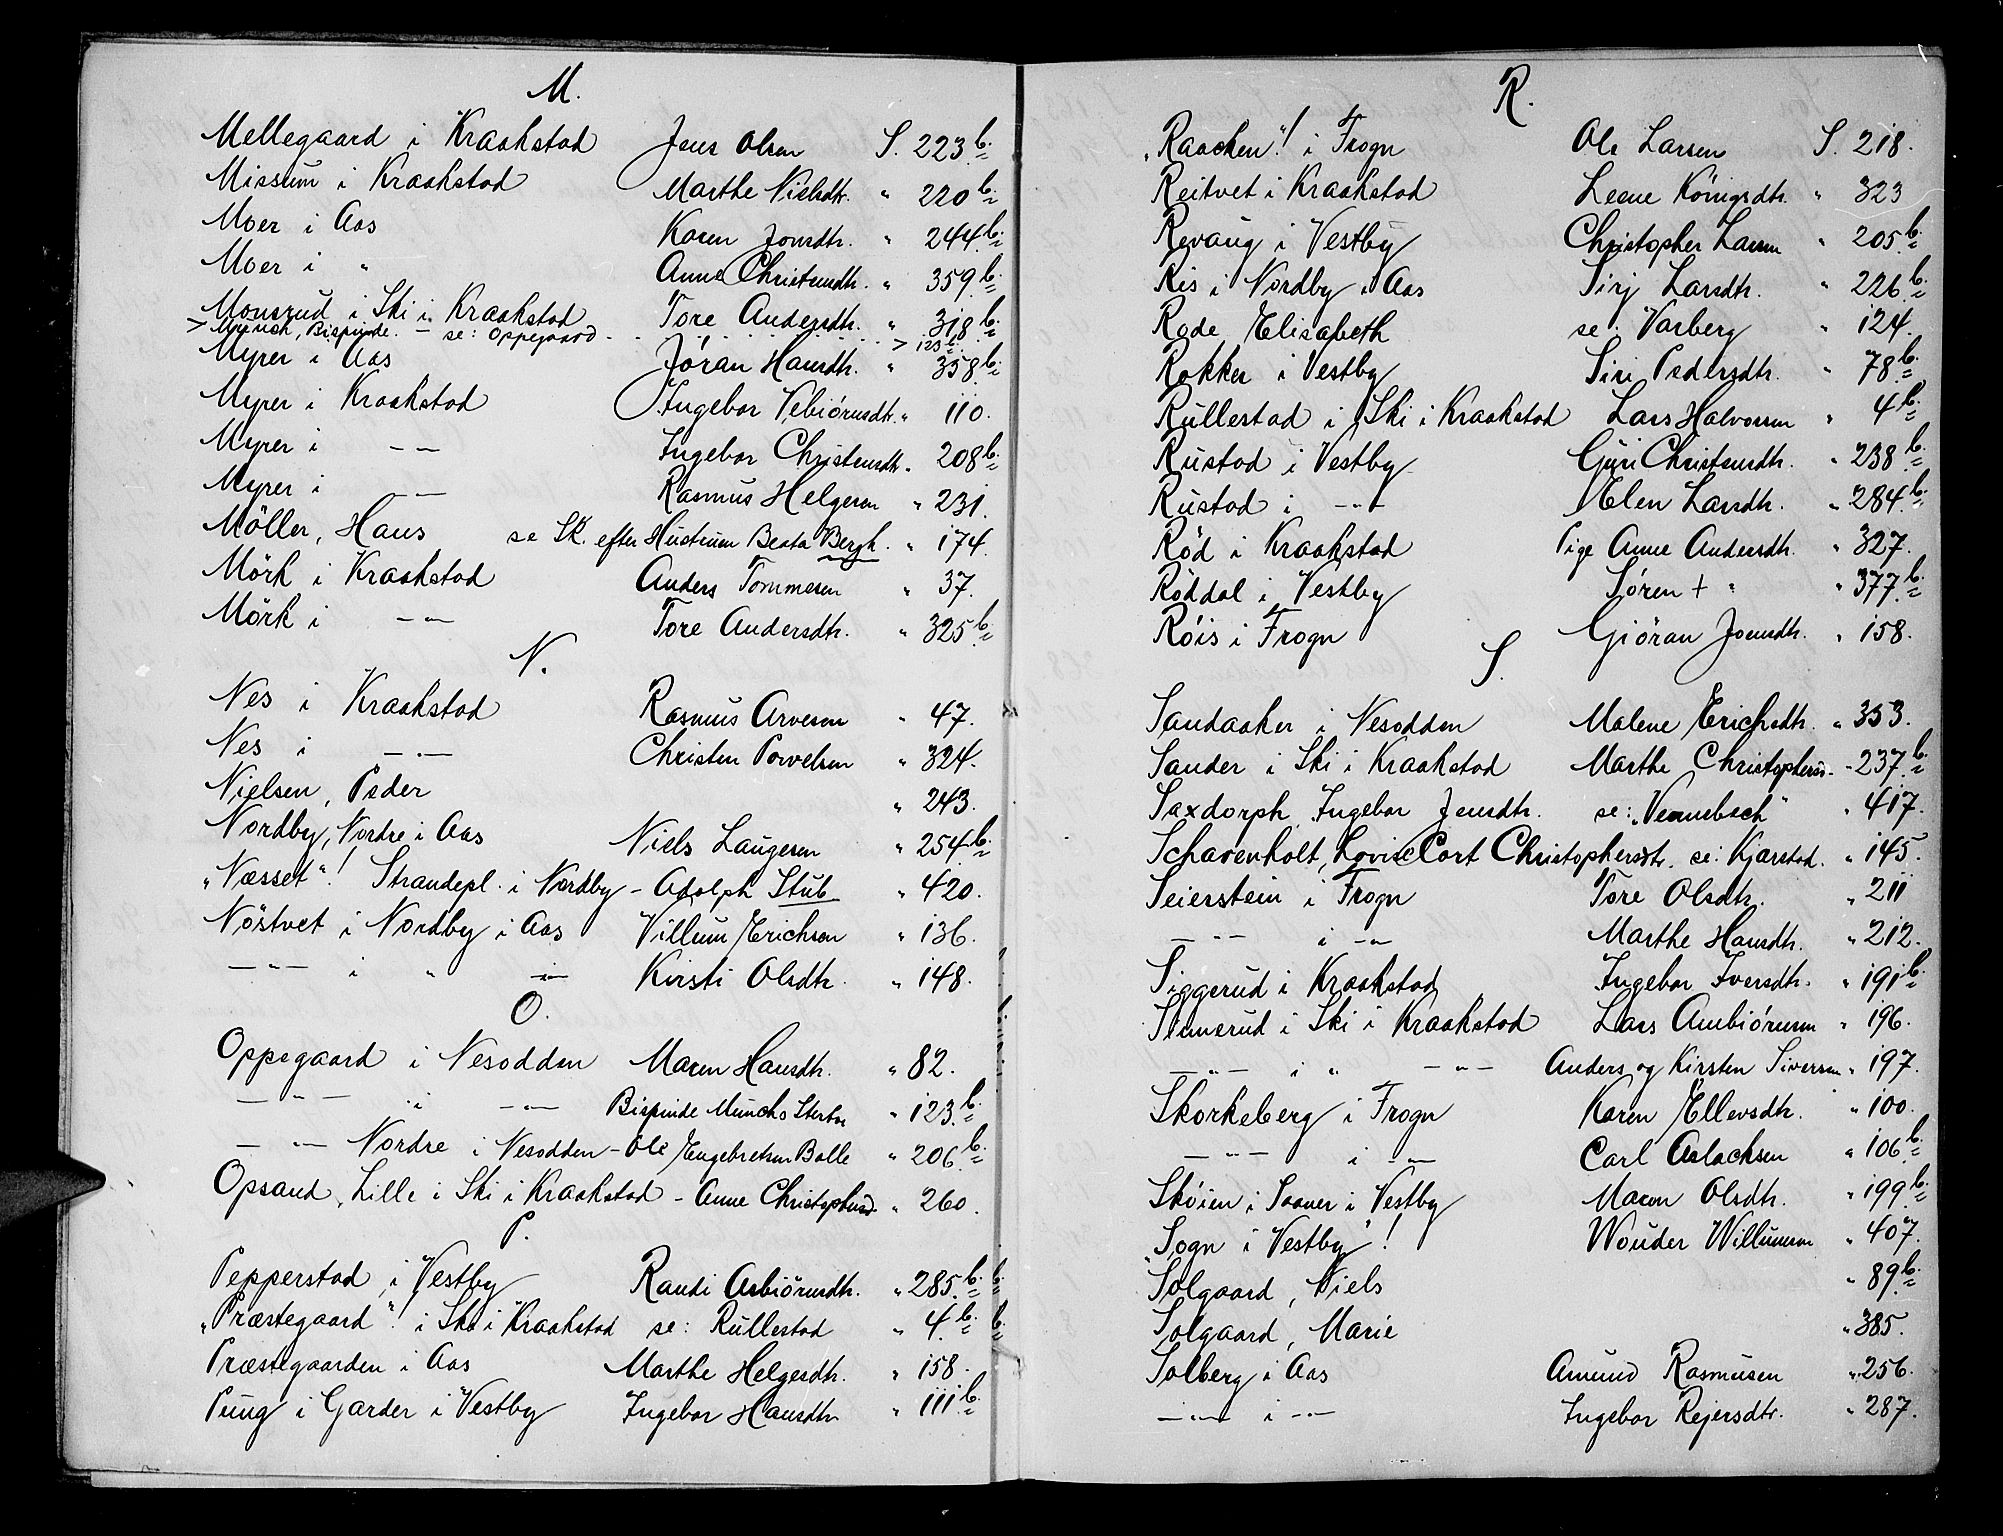 M.
Mellegaard i Kraakstad Jens Olsen S. 223 b.
Missum i Kraakstad Marthe Nielsdtr. " 220 b
Moer i Aas Karen Jonsdtr. " 244 b.
Moer i " Anne Christensdtr. " 359 b.
Monsrud i Ski i Kraakstad Tore Andersdtr. " 318 b.
> Munch, Bispinde. — se: Oppegaard - . . . . . . > 123 b.
Myrer i Aas Jöran Hansdtr. " 358 b.
Myrer i Kraakstad Ingebor Vebiörnsdtr. " 110.
Myrer i — — Ingebor Christensdtr. " 208 b.
Myrer i — — Rasmus Helgesen " 231.
Möller, Hans se Sk. efter Hustruen Beata Bergh. " 174.
Mörk i Kraakstad Anders Tommesen " 37.
Mörk i — " — Tore Andersdtr. " 325 b.
N.
Nes i Kraakstad Rasmus Arvesen " 47.
Nes i — " — Christen Povelsen " 324.
Nielsen, Peder " 243.
Nordby, Nordre i Aas Niels Laugesen " 254 b.
"Næsset"! Strandepl. i Nordby - Adolph Stub " 420.
Nöstvet i Nordby i Aas Villum Erichsen " 136.
— " — i " i — Kirsti Olsdtr. " 148.
O.
Oppegaard i Nesodden Maren Hansdtr. " 82.
— " — i — " — Bispinde Munchs Sterbo " 123 b.
— " — Nordre i Nesodden - Ole Engebretsen Balle " 206 b.
Opsand, Lille i Ski i Kraakstad - Anne Christophersd. " 260.
P.
Pepperstad i Vestby Randi Asbiörnsdtr. " 285 b.
"Præstegaard"! i Ski i Kraakstad se: Rullestad " 4 b.
Præstegaarden i Aas Marthe Helgesdtr. " 158.
Pung i Garder i Vestby Ingebor Hansdtr " 111 b.
R.
"Raacken"! i Frogn Ole Larsen S. 218.
Reitvet i Kraakstad Leene Königsdtr. " 323
Revaug i Vestby Christopher Larsen " 205 b.
Ris i Nordby i Aas Sirj Larsdtr. " 226 b.
Rode Elisabeth se: Varberg " 124.
Rokker i Vestby Siri Pedersdtr. " 78 b.
Rullestad i Ski i Kraakstad Lars Halvorsen " 4 b.
Rustad i Vestby Guri Christensdtr. " 238 b.
Rustad i — " — Elen Larsdtr. " 284 b.
Röd i Kraakstad Pige Anne Andersdtr. " 327.
Röddal i Vestby Sören + " " 377 b.
Röis i Frogn Giöran Joensdtr. " 158.
S.
Sandaaker i Nesodden Malene Erichsdtr. " 353.
Sander i Ski i Kraakstad Marthe Christophersd. " 237 b.
Saxdorph, Ingebor Jensdtr. se: "Vennebech" " 417.
Schavenholt, Lovise Cort Christophersdtr. se: Kjærstad. " 145.
Seierstein i Frogn Tore Olsdtr. " 211
— " — i — " — Marthe Hansdtr. " 212.
Siggerud i Kraakstad Ingebor Iversdtr. " 191 b
Simerud i Ski i Kraakstad Lars Ambiörnsen " 196.
— " — i " — " — Anders og Kirsten Siversen " 197
Skorkeberg i Frogn Karen Ellevsdtr. " 100.
— " — i — " — Carl Aslachsen " 106 b.
Sköien i Soaner i Vestby Maren Olsdtr. " 199 b.
"Sogn i Vestby"! Wouder Willumsen " 407.
Solgaard, Niels " 89 b.
Solgaard, Marie " 385.
Solberg i Aas Amund Rasmusen " 256.
— " — i — " — Ingebor Rejersdtr. " 287.